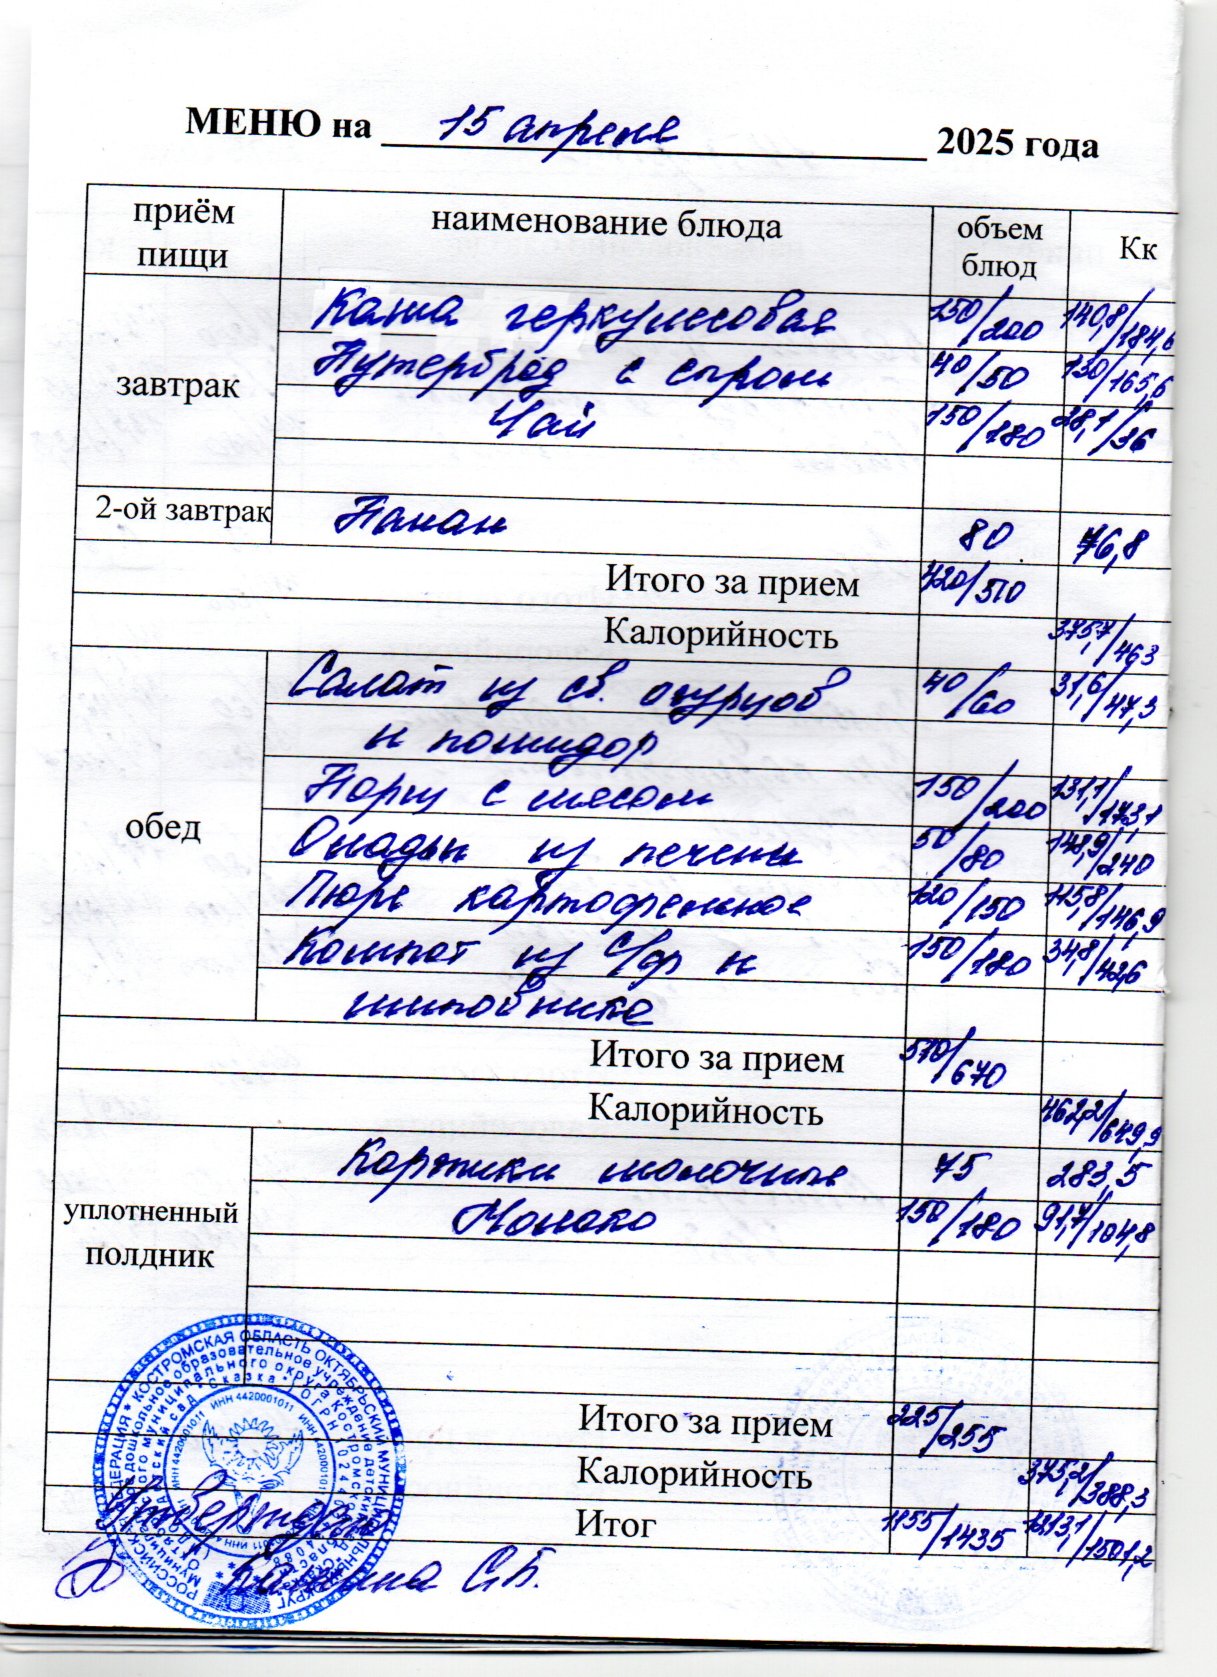 МЕНЮ на 15 апреля 2025 года
приём пищи наименование блюда объем блюд Кк
завтрак
Каша геркулесовая 150/200 140,8/184,6
Бутерброд с сыром 40/50 130/165,6
Чай 150/180 28,1/36
2-ой завтрак Банан 80 76,8
Итого за прием 420/510
Калорийность 375,7/463
обед
Салат из св. огурцов 40/60 31,6/47,3
и помидор
Борщ с мясом 150/200 131,1/173,1
Оладьи из печени 50/80 148,9/240
Пюре картофельное 120/150 115,8/146,9
Компот из С/ф и 150/180 34,8/42,6
шиповника
Итого за прием 510/670
Калорийность 462,2/649,9
уплотненный полдник
Коржики молочные 75 283,5
Молоко 150/180 91,7/104,8
Итого за прием 225/255
Калорийность 375,2/388,3
Итог 1155/1435 1213,1/1501,2
Утверждаю
С.Б.
РОССИЙСКАЯ ФЕДЕРАЦИЯ * КОСТРОМСКАЯ ОБЛАСТЬ ОКТЯБРЬСКИЙ МУНИЦИПАЛЬНЫЙ ОКРУГ
дошкольное образовательное учреждение детский сад
муниципального округа Костромской области
детский сад "Сказка"
ИНН 4420001011